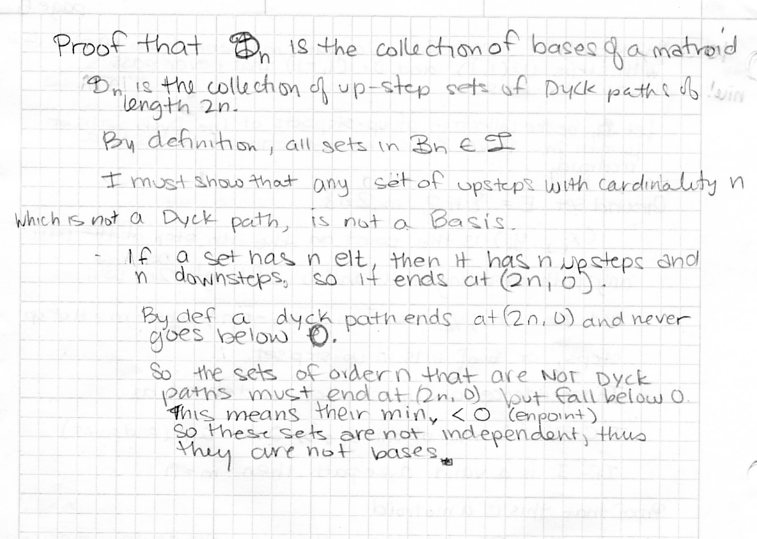 Proof that Bn is the collection of bases of a matroid
Bn is the collection of up-step sets of Dyck paths of
length 2n.
By definition, all sets in Bn ∈ I
I must show that any set of upsteps with cardinality n
which is not a Dyck path, is not a Basis.
- If a set has n elt, then it has n upsteps and
n downsteps, so it ends at (2n, 0).
By def a dyck path ends at (2n, 0) and never
goes below 0.
So the sets of order n that are NOT Dyck
paths must end at (2n, 0) but fall below 0.
This means their min y < 0 (enpoint)
So these sets are not independent, thus
they are not bases.